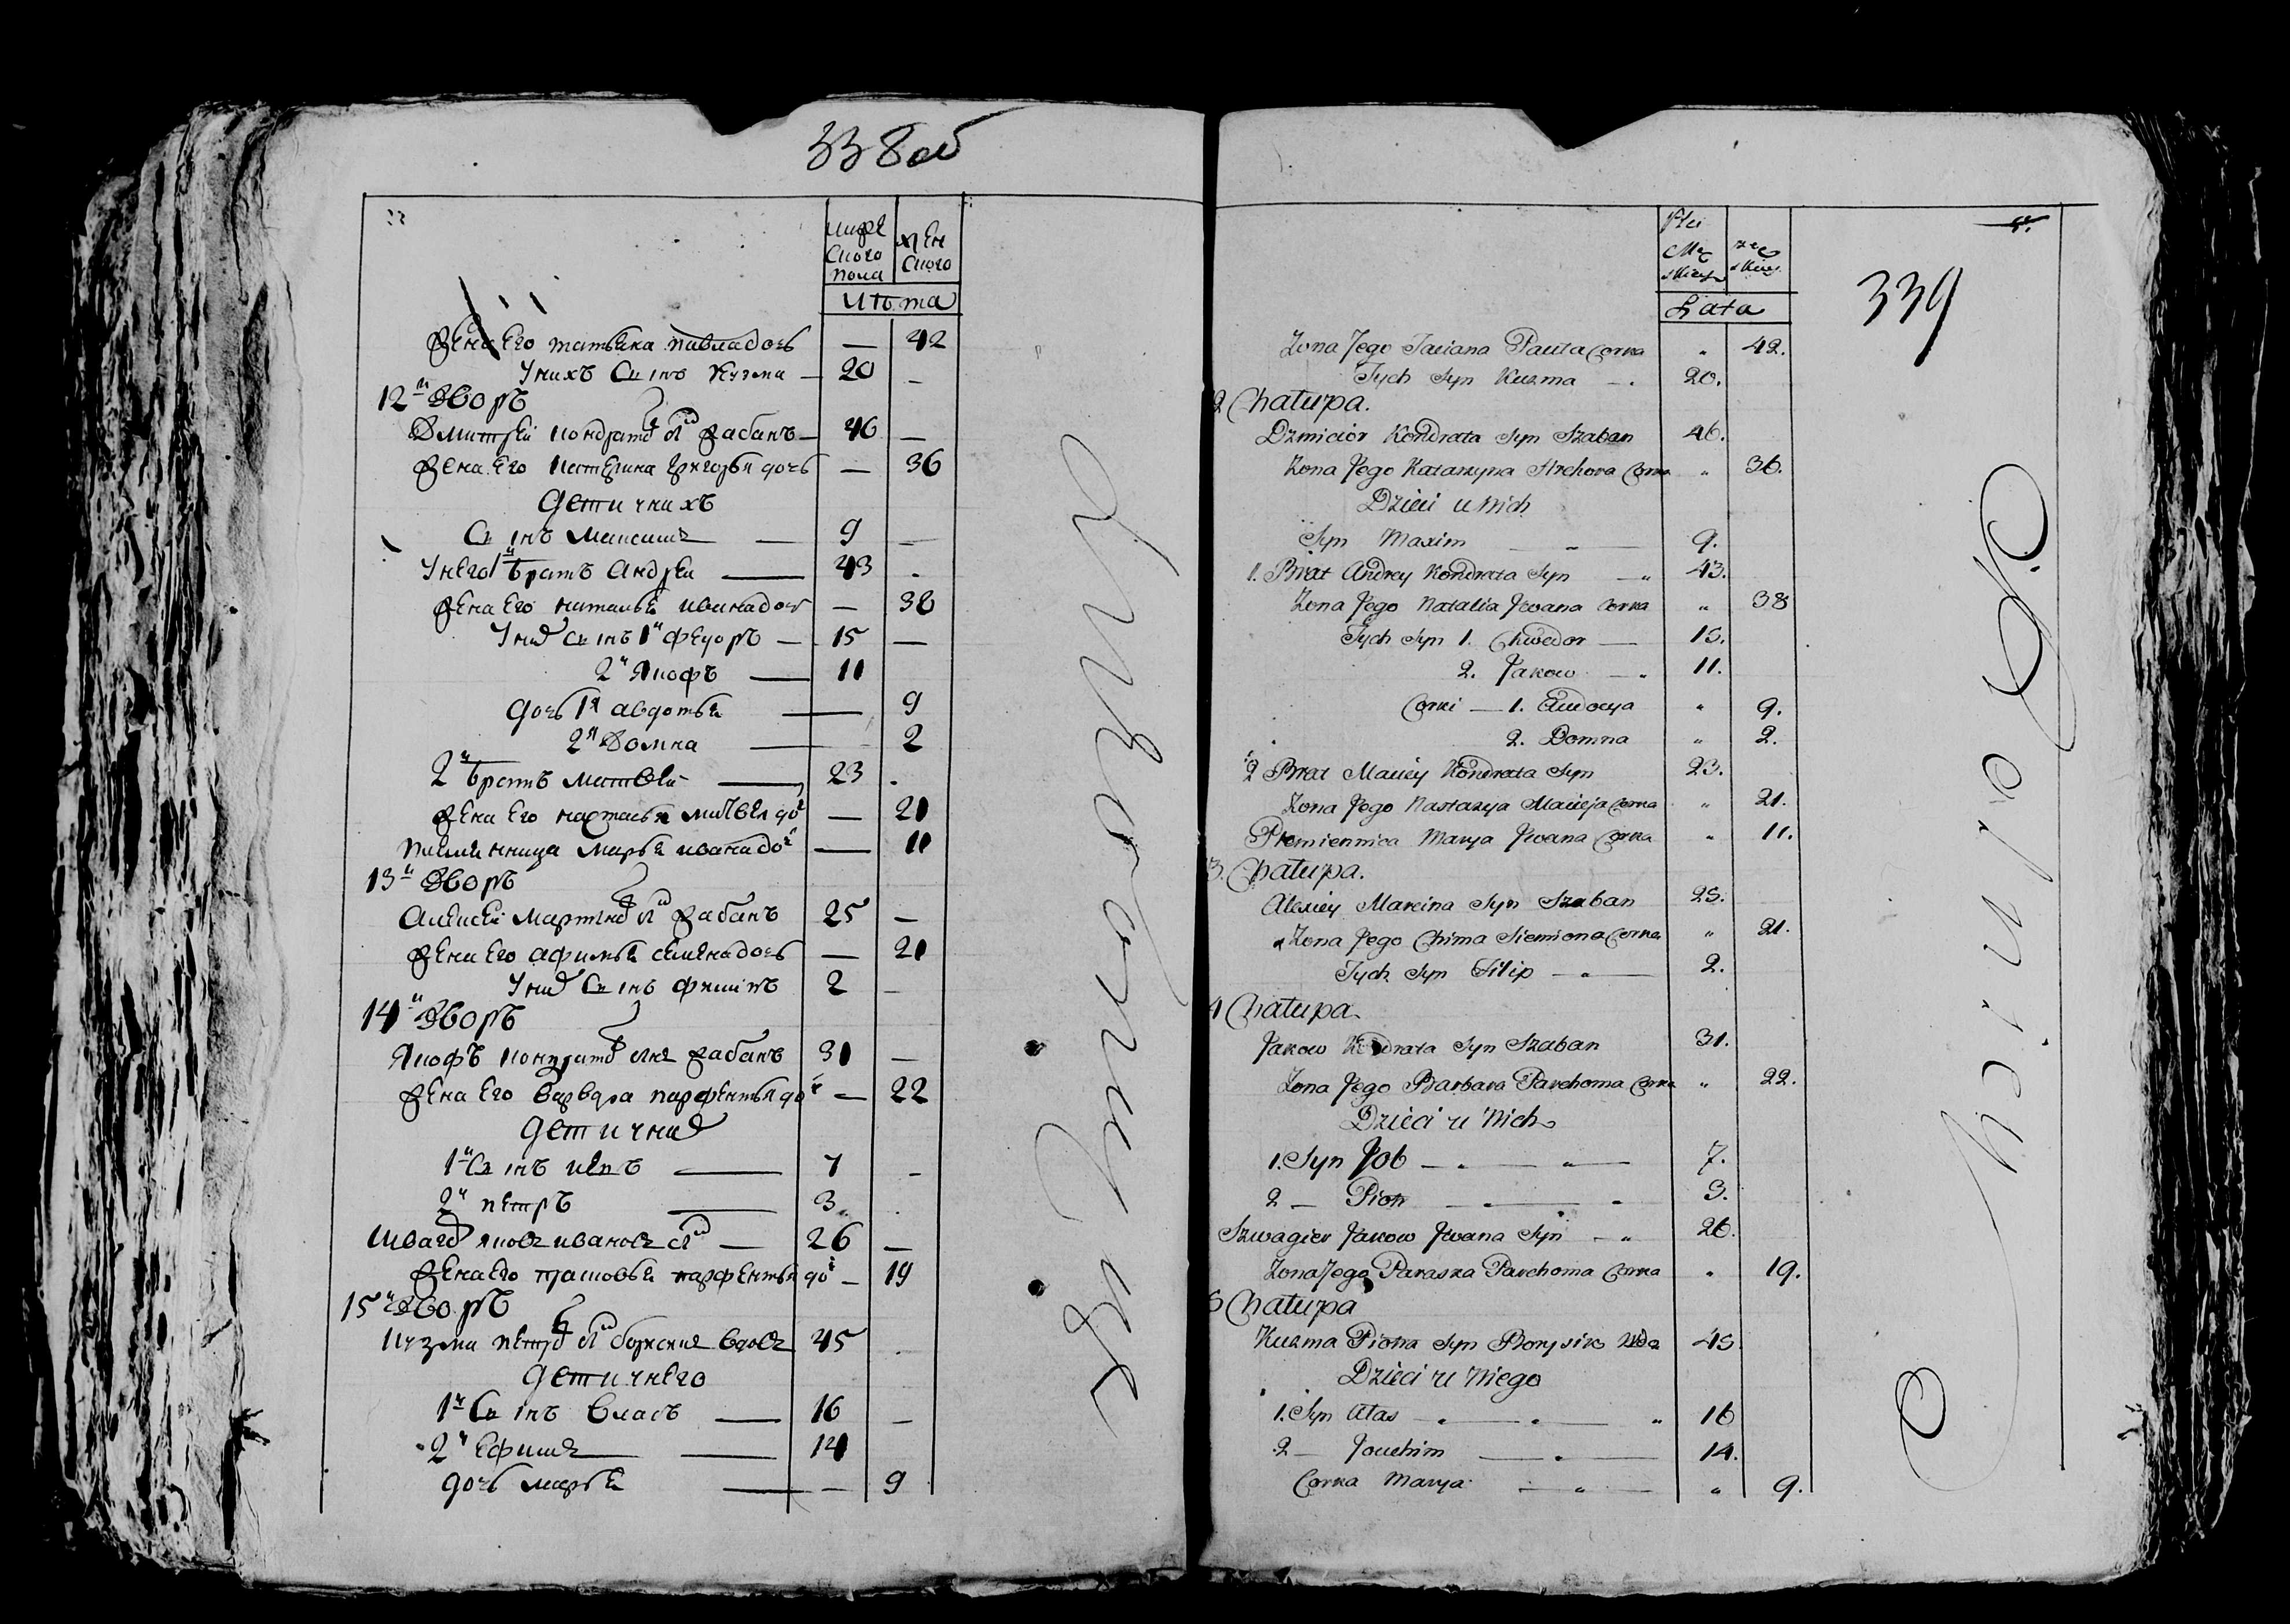 338об
мужескаго пола
женскаго
лѣта
жена его татьяна павла дочь — 42
у нихъ сынъ кузма — 20 —
12й дворъ
Дмитрей кондратовъ сынъ жабанъ — 46 —
жена его катерина григорья дочь — 36
дети у нихъ
сынъ максимъ — 9 —
у него 1й братъ андреи — 43
жена его наталья ивана дочь — 38
у них сынъ 1й федоръ — 15 —
2й якофъ — 11
дочь 1я авдотья — 9
2я Домна — 2
2й братъ матвеи — 23
жена его настасья матвея доч — 21
племянница марья ивана доч — 11
13й дворъ
алексеи мартиновъ сынъ жабанъ 25 —
жена его афимья семена дочь — 21
у них сынъ филипъ 2 —
14й дворъ
якофъ кондратовъ сынъ жабанъ 31 —
жена его варвара парфентья доч — 22
дети у них
1й сынъ иевъ — 7 —
2й петръ — 3
швагер яковъ ивановъ сынъ — 26 —
жена его прасковья парфентья доч — 19
15й дворъ
кузма петровъ сынъ борисикъ вдовъ 45
дети у него
1й сынъ власъ — 16 —
2й ефимъ — 14
дочь марья — 9
339
Płci
Męzskiey
Lata
Zona Jego Taciana Pauła Corka " 42.
Tych Syn Kuzma — 20.
2 Chałupa.
Dzmicior Kondrata Syn Szaban 46.
Zona Jego Katarzyna Hrehora Corka " 36.
Dzieci u Nich
Syn Maxim — " — 9.
1. Brat Andrey Kondrata Syn — " 43.
Zona Jego Natalia Jwana Corka " 38
Tych Syn 1. Chwedor — 15.
2. Jakow — 11.
Corki — 1. Audocya " 9.
2. Domna " 2.
2 Brat Maciey Kondrata Syn 23.
Zona Jego Nastazya Macieja Corka " 21.
Plemiennica Marya Jwana Corka " 11.
3. Chałupa.
Alexiey Marcina Syn Szaban 25.
Zona Jego Chima Siemiona Corka " 21.
Tych Syn Filip — " — 2.
4 Chałupa.
Jakow Kondrata Syn Szaban 31.
Zona Jego Barbara Parchoma Corka " 22.
Dzieci u Nich
1. Syn Job — " — " — 7.
2 — Piotr — " 3.
Szwagier Jakow Jwana Syn — " 26.
Zona Jego Paraska Parchoma Corka " 19.
5 Chałupa
Kuzma Piotra Syn Borysik 45.
Dzieci u Niego
1. Syn Ałas — " — " — " 16
2 — Jouchim — " — 14.
Corka Marya — " — " 9.